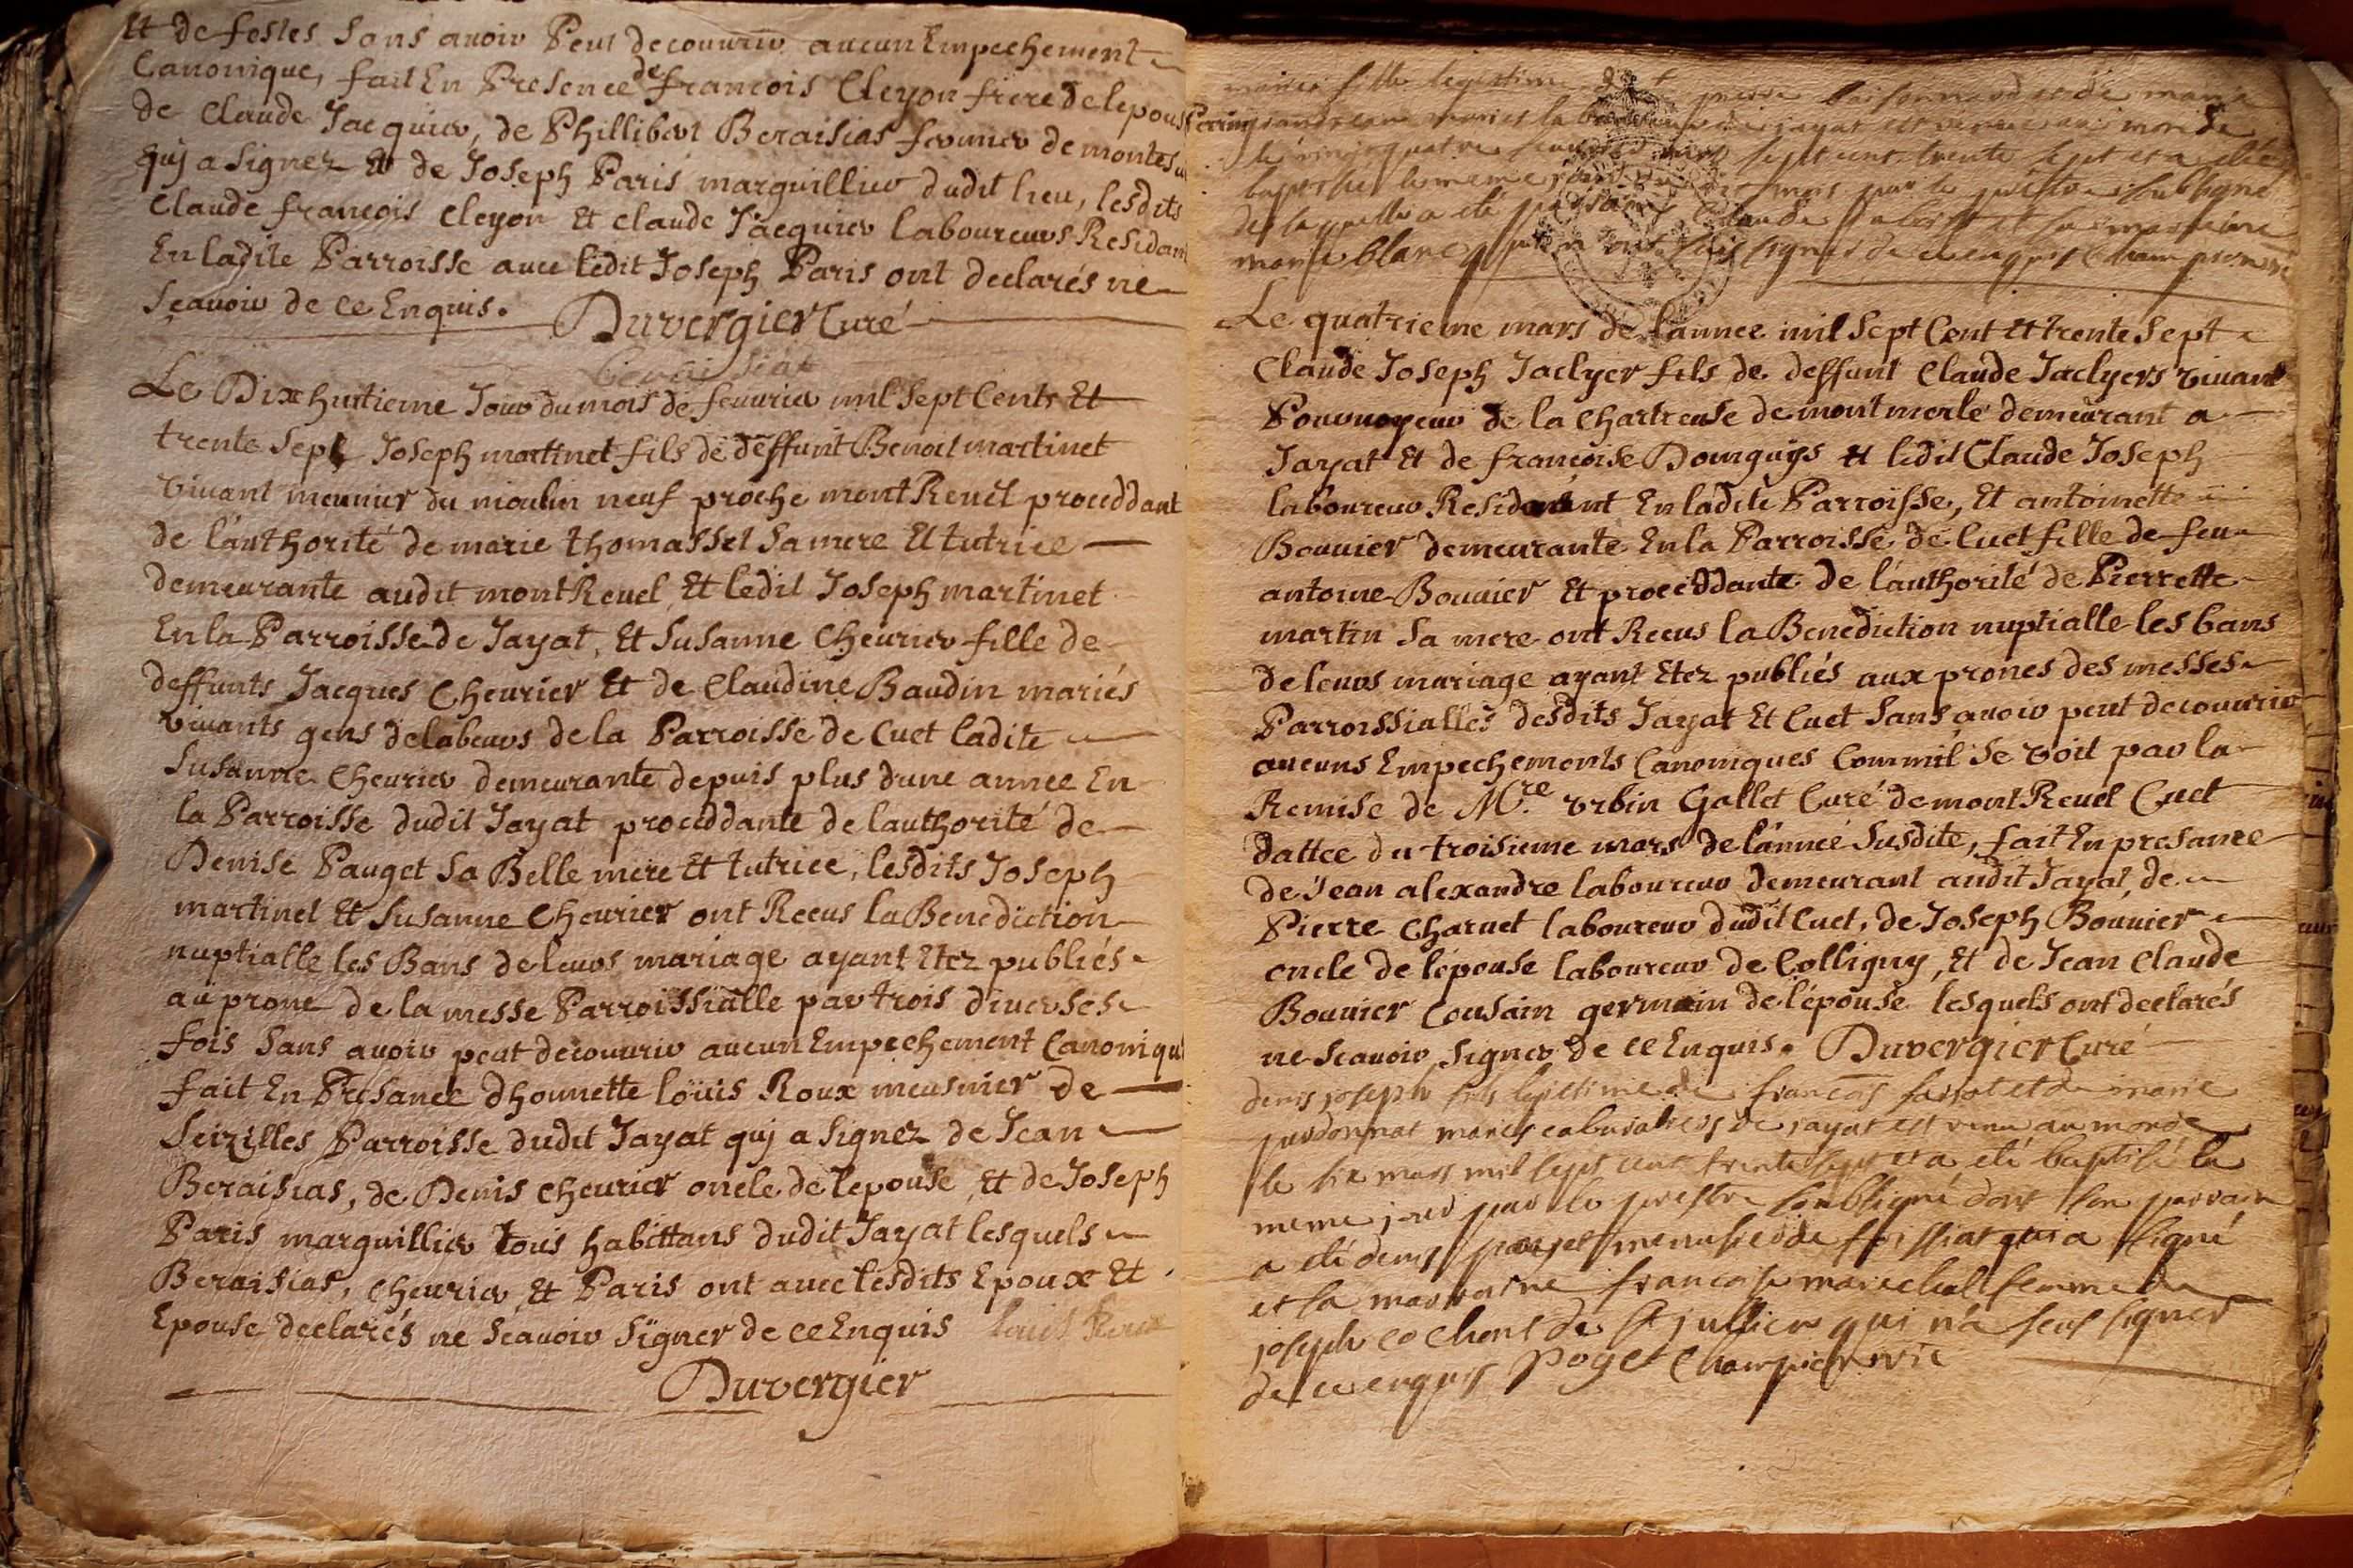 Et de festes sans avoir Peut decouvrir aucun Empechement
Canonique, fait En Presence de francois Cleyon frere de lepous
de Claude Jacquier, de Phillibert Beraisias fermier de
quj a signez Et de Joseph Paris marguillier dudit lieu, lesdits
Claude francois Cleyon Et Claude Jacquier laboureurs Residan
En ladite Parroisse avec ledit Joseph Paris ont declarés ne
Scavoir de ce Enquis. Duvergier Curé
Le Dixhuitieme Jour du mois de fevrier mil Sept Cents Et
trente Sept Joseph martinet fils de deffunt Benoit martinet
vivant meunier du moulin neuf proche montRevel proceddant
de l'authorité de marie thomasset Sa mere Et tutrice
demeurante audit montRevel, Et ledit Joseph martinet
En la Parroisse de Jayat, Et Susanne Chevrier fille de
deffunts Jacques Chevrier Et de Claudine Baudin mariés
vivants gens delabeurs de la Parroisse de Cuet ladite
Susanne Chevrier demeurante depuis plus dune annee En
la Parroisse dudit Jayat proceddante de lauthorité de
Denise Pauget Sa Belle mere Et tutrice, lesdits Joseph
martinet Et Susanne Chevrier ont Receus la Benediction
nuptialle les Bans de leurs mariage ayant Etez publiés
au prone de la messe Parroissialle par trois diverses
fois Sans avoir peut decouvrir aucun Empechement Canoniqu
fait En Presance dhonnette loüis Roux meusnier de
Seizilles Parroisse dudit Jayat quj a Signez de Jean
Beraisias, de Denis Chevrier oncle de lepouse, Et de Joseph
Paris marguillier tous habittans dudit Jayat lesquels
Beraisias, Chevrier Et Paris ont avec lesdits Epoux Et
Epouse declarés ne Scavoir Signer de ce Enquis Louis Roux
Duvergier
fille legitime pierre et de marie
mariés de jayat est venue au monde
le vingt quatre sept cent trente sept et a été
baptisée le meme jour mois par le prestre soubsigné
de laquelle a été Claude et sa marraine
marie blanc signer de ce enquis
Le quatrieme mars de lannee mil Sept Cent Et trente Sept
Claude Joseph Jaclyer fils de deffunt Claude Jaclyers vivant
Pourvoyeur de la Chartreuse de montmerle demeurant a
Jayat Et de francoise Dourguys Et ledit Claude Joseph
laboureur Residant En ladite Parroisse, Et antoinette
Bouvier demeurante En la Parroisse de Cuet fille de feu
antoine Bouvier Et proceddante de l'authorité de Pierrette
martin Sa mere ont Receus la Benediction nuptialle les bans
de leurs mariage ayant Etez publiés aux prones des messes
Parroissialles desdits Jayat Et Cuet Sans avoir peut decouvrir
aucuns Empechements Canoniques Commil Se voit par la
Remise de Mre. Urbin Gallet Curé de montRevel Cuet
dattee du troisieme mars de l'année Susdite, fait En presance
de Jean alexandre laboureur demeurant audit Jayat, de
Pierre Charvet laboureur dudit Cuet, de Joseph Bouvier
oncle de l'épouse laboureur de Colligny, Et de Jean Claude
Bouvier Cousain germain de l'épouse lesquels ont declarés
ne Scavoir Signer de ce Enquis. Duvergier Curé
denis joseph fils legitime de francois et de marie
mariés de jayat est venu au monde
le six mars mil sept cent trente sept et a été baptisé le
meme jour par le prestre soubsigné dont son parrain
a été denis menusier de foissiat qui a signé
et la marraine francoise marechal femme de
joseph cochons de st jullien qui n'a seut signer
de ce enquis Poget Champion vic